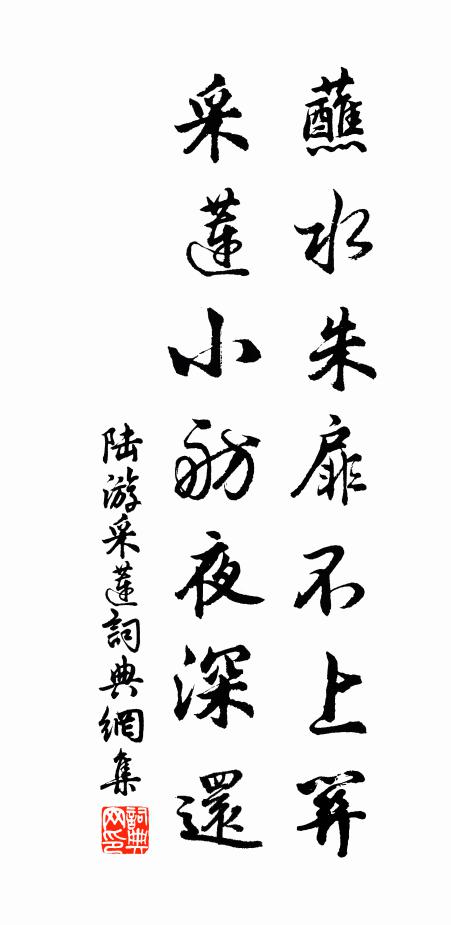 蘸水朱扉不上關
采蓮小舫夜深還
陸游采蓮詞典網集
詞典网印